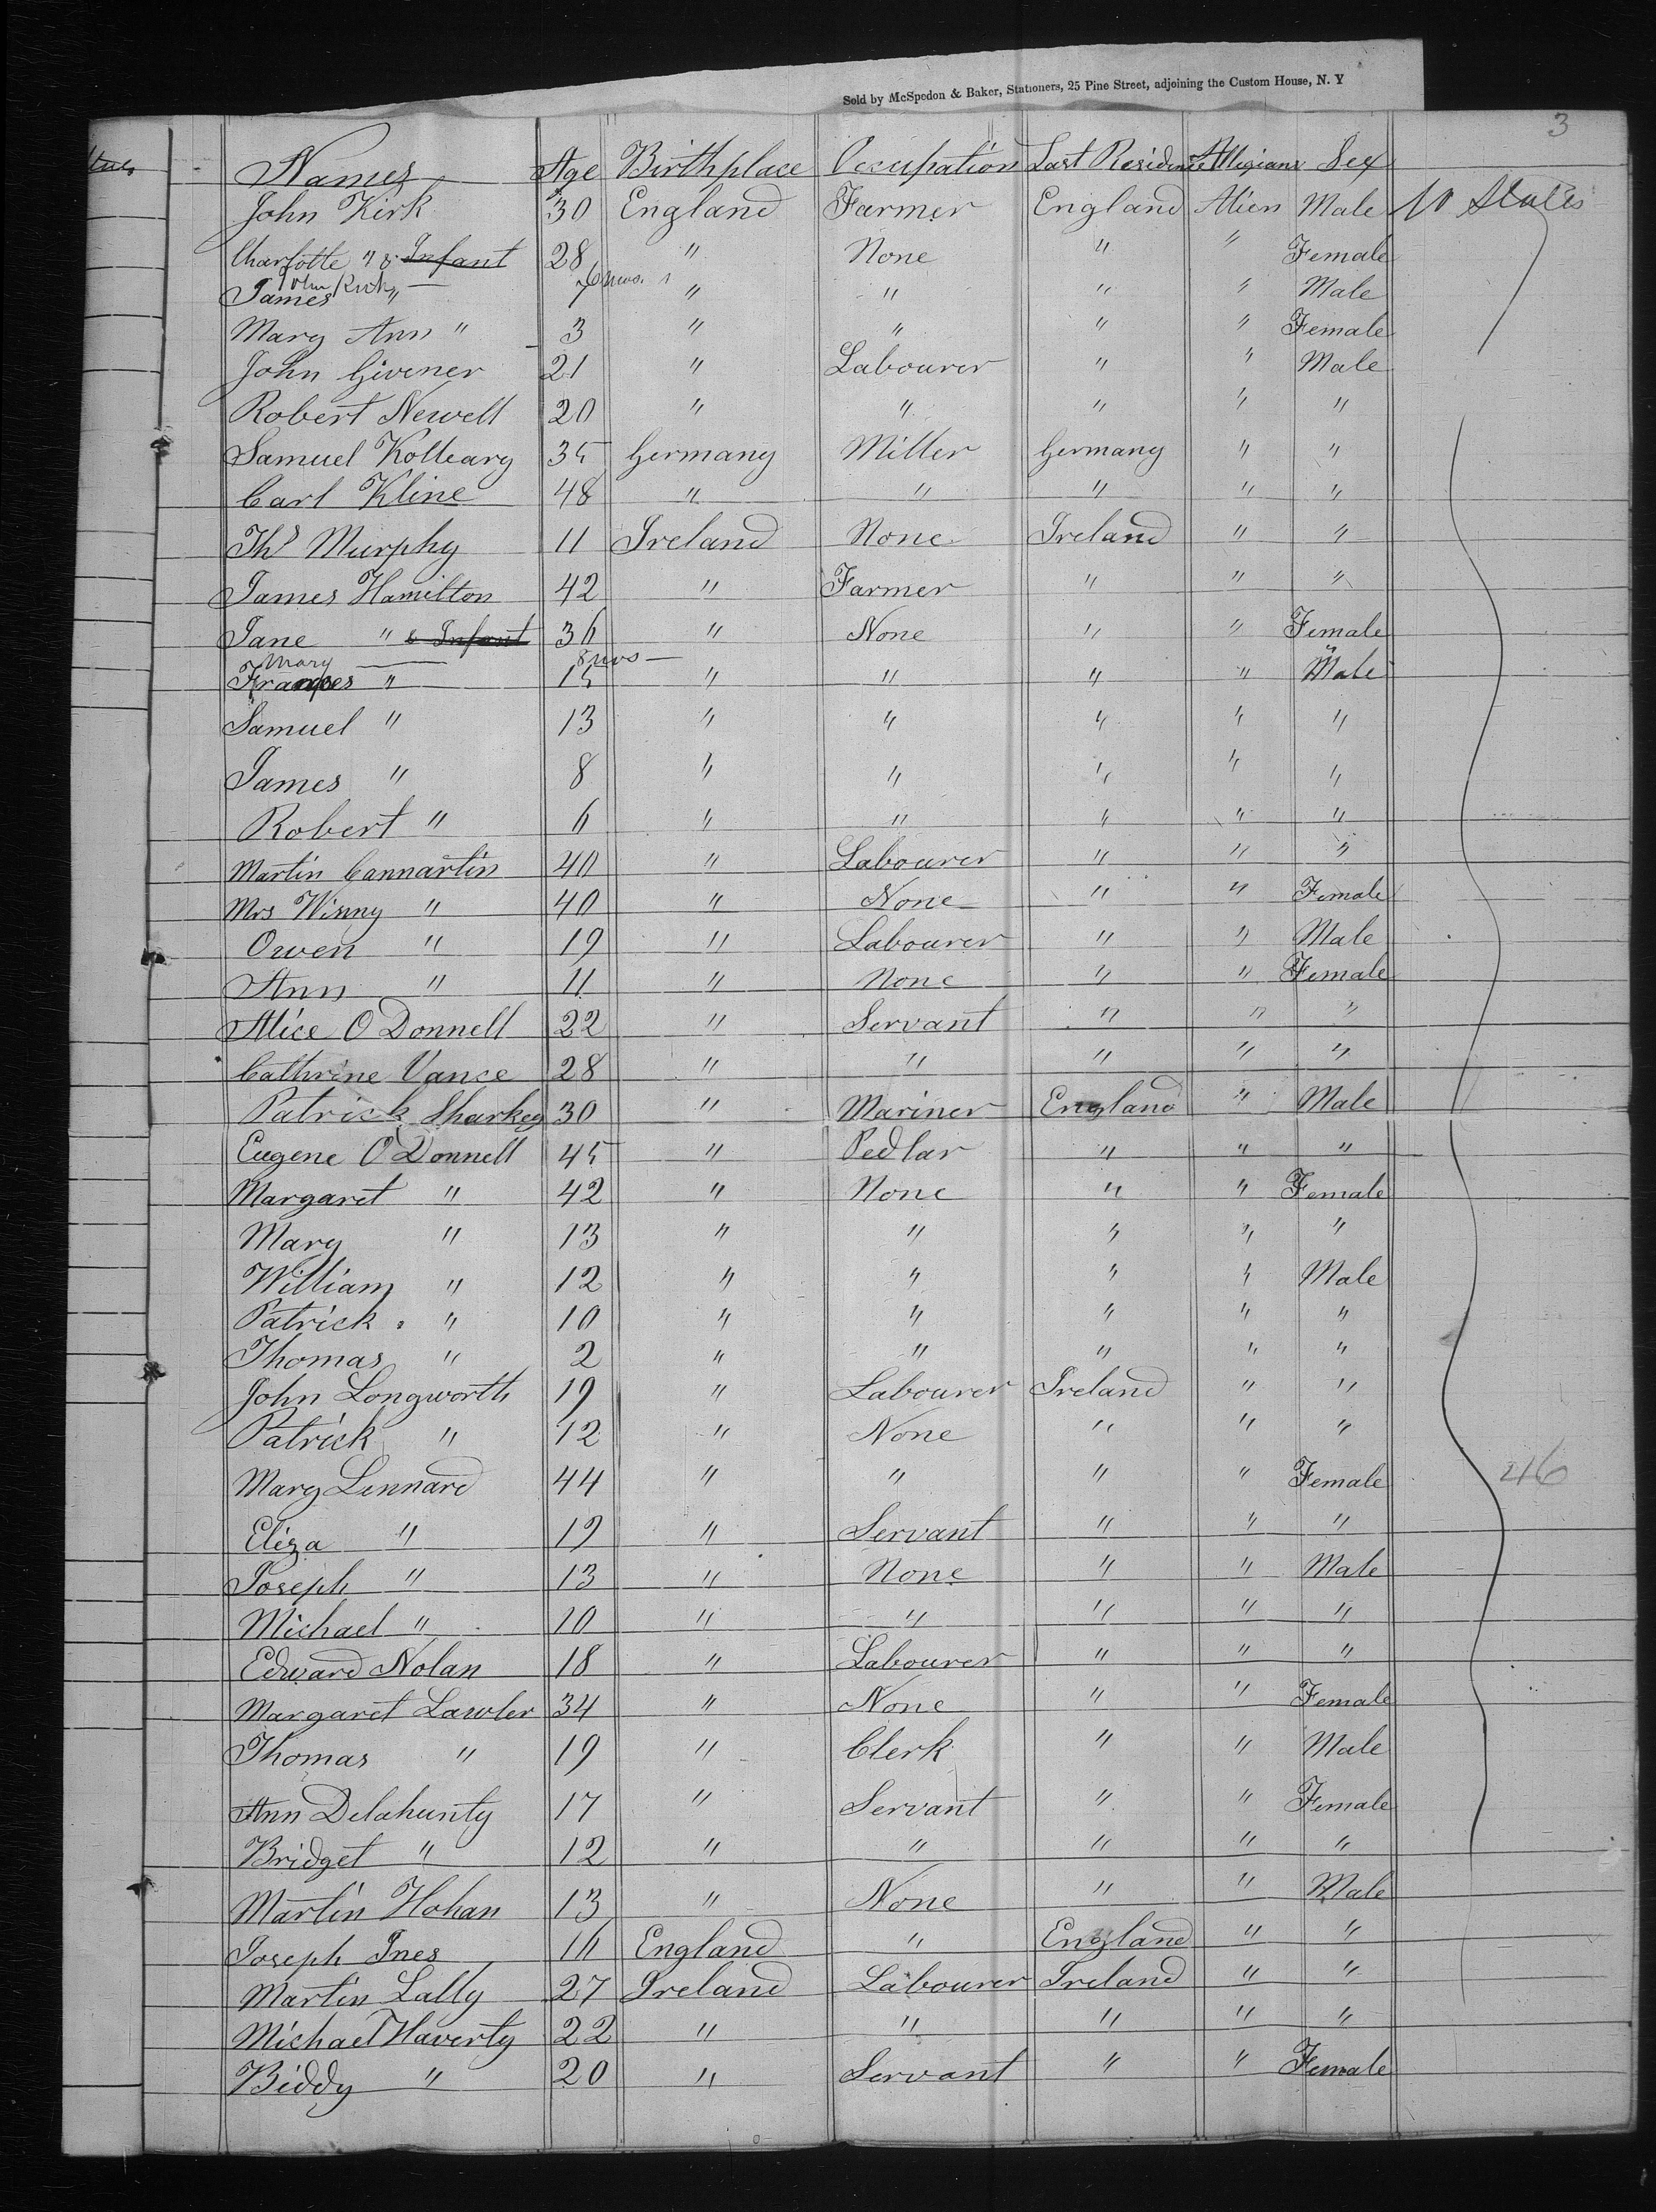 Sold by McSpedon & Baker, Stationers, 25 Pine Street, adjoining the Custom House, N. Y
3
Names Age Birthplace Occupation Last Residence Allegians Sex
John Kirk 30 England Farmer England Alien Male U States
Charlotte " & Infant 28 " None " " Female
John Kirk 6 mos.
James " 7 " " " " Male
Mary Ann " 3 " " " " Female
John Givener 21 " Labourer " " Male
Robert Newell 20 " " " " "
Samuel Kolleary 35 Germany Miller Germany " "
Carl Kline 48 " " " " "
Ths Murphy 11 Ireland None Ireland " "
James Hamilton 42 " Farmer " " "
Jane " & Infant 36 " None " " Female
Mary 8 mos
Frances " 15 " " " " Male
Samuel " 13 " " " " "
James " 8 " " " " "
Robert " 6 " " " " "
Martin Cannartin 40 " Labourer " " "
Mrs Winny " 40 " None " " Female
Owen " 19 " Labourer " " Male
Ann " 11 " None " " Female
Alice O Donnell 22 " Servant " " "
Cathrine Vance 28 " " " " "
Patrick Sharkey 30 " Mariner England " Male
Eugene O'Donnell 45 " Pedlar " " "
Margaret " 42 " None " " Female
Mary " 13 " " " " "
William " 12 " " " " Male
Patrick " 10 " " " " "
Thomas " 2 " " " " "
John Longworth 19 " Labourer Ireland " "
Patrick " 12 " None " " "
Mary Lennard 44 " " " " Female 46
Eliza " 19 " Servant " " "
Joseph " 13 " None " " Male
Michael " 10 " " " " "
Edward Nolan 18 " Labourer " " "
Margaret Lawler 34 " None " " Female
Thomas " 19 " Clerk " " Male
Ann Delahunty 17 " Servant " " Female
Bridget " 12 " " " " "
Martin Hohan 13 " None " " Male
Joseph Ines 16 England " England " "
Martin Lally 27 Ireland Labourer Ireland " "
Michael Haverty 22 " " " " "
Biddy " 20 " Servant " " Female